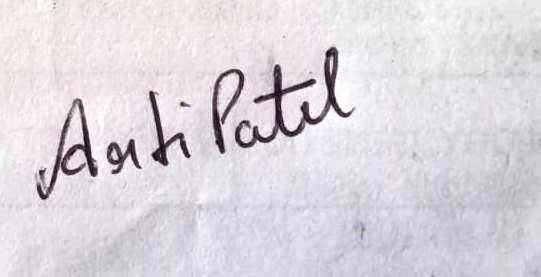 Arti Patel